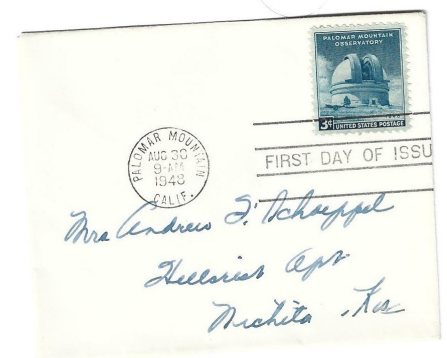 PALOMAR MOUNTAIN
OBSERVATORY
3¢ UNITED STATES POSTAGE
PALOMAR MOUNTAIN
AUG 30
9-AM
1948
CALIF.
FIRST DAY OF ISSU
Mrs Andrew F. Schoeppel
Hillcrest Apt
Wichita, Kas